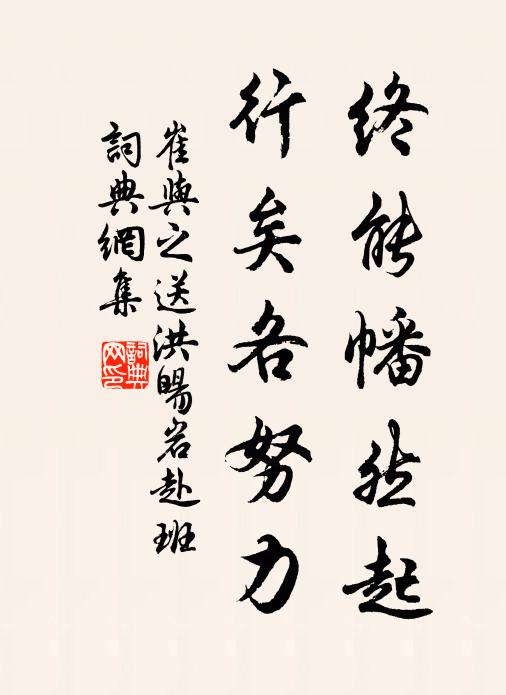 终能幡然起
行矣各努力
崔與之送洪旸岩赴班
詞典網集
詞典网印